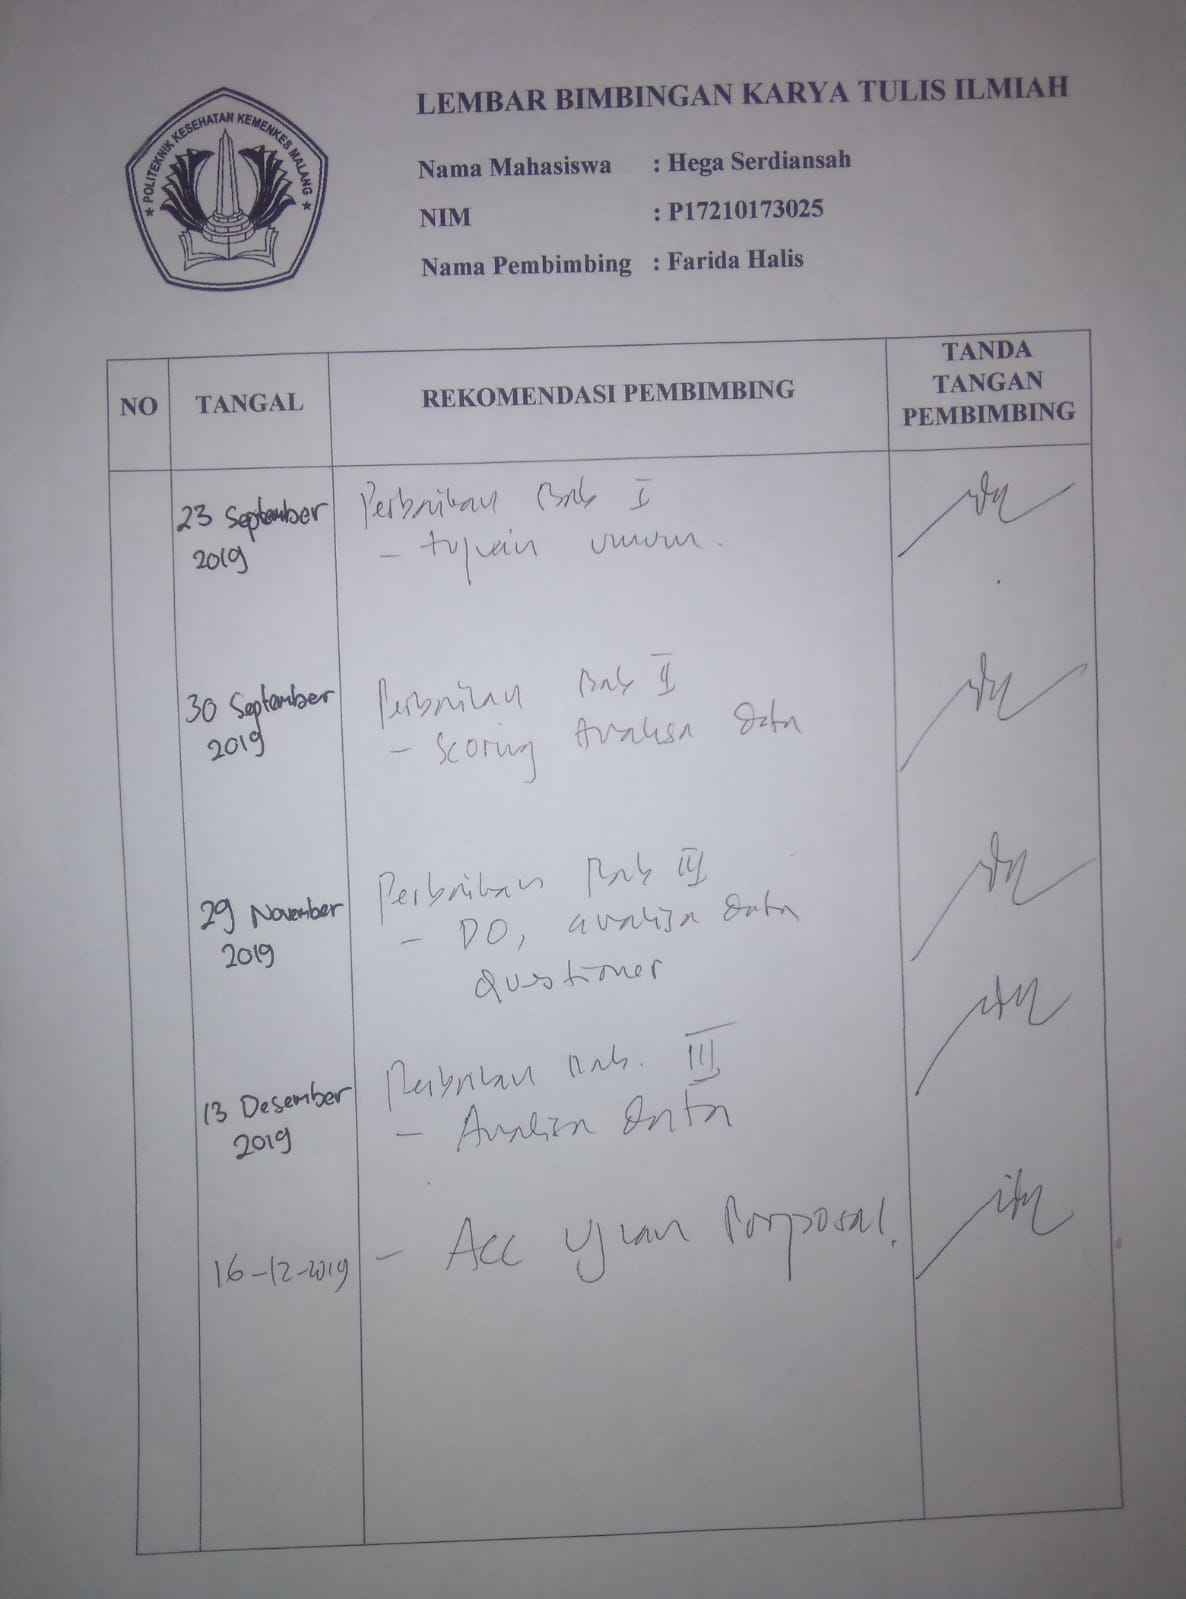 LEMBAR BIMBINGAN KARYA TULIS ILMIAH
★ POLITEKNIK KESEHATAN KEMENKES MALANG ★
Nama Mahasiswa : Hega Serdiansah
NIM : P17210173025
Nama Pembimbing : Farida Halis
NO TANGAL REKOMENDASI PEMBIMBING TANDA TANGAN PEMBIMBING
23 September 2019
Perbaikan Bab I
- tujuan umum.
30 September 2019
Perbaikan Bab II
- Scoring Analisa data
29 November 2019
Perbaikan Bab III
- DO, analisa data
Questioner
13 Desember 2019
Perbaikan Bab. III
- Analisa data
16-12-2019
- Acc Ujian Porposal.